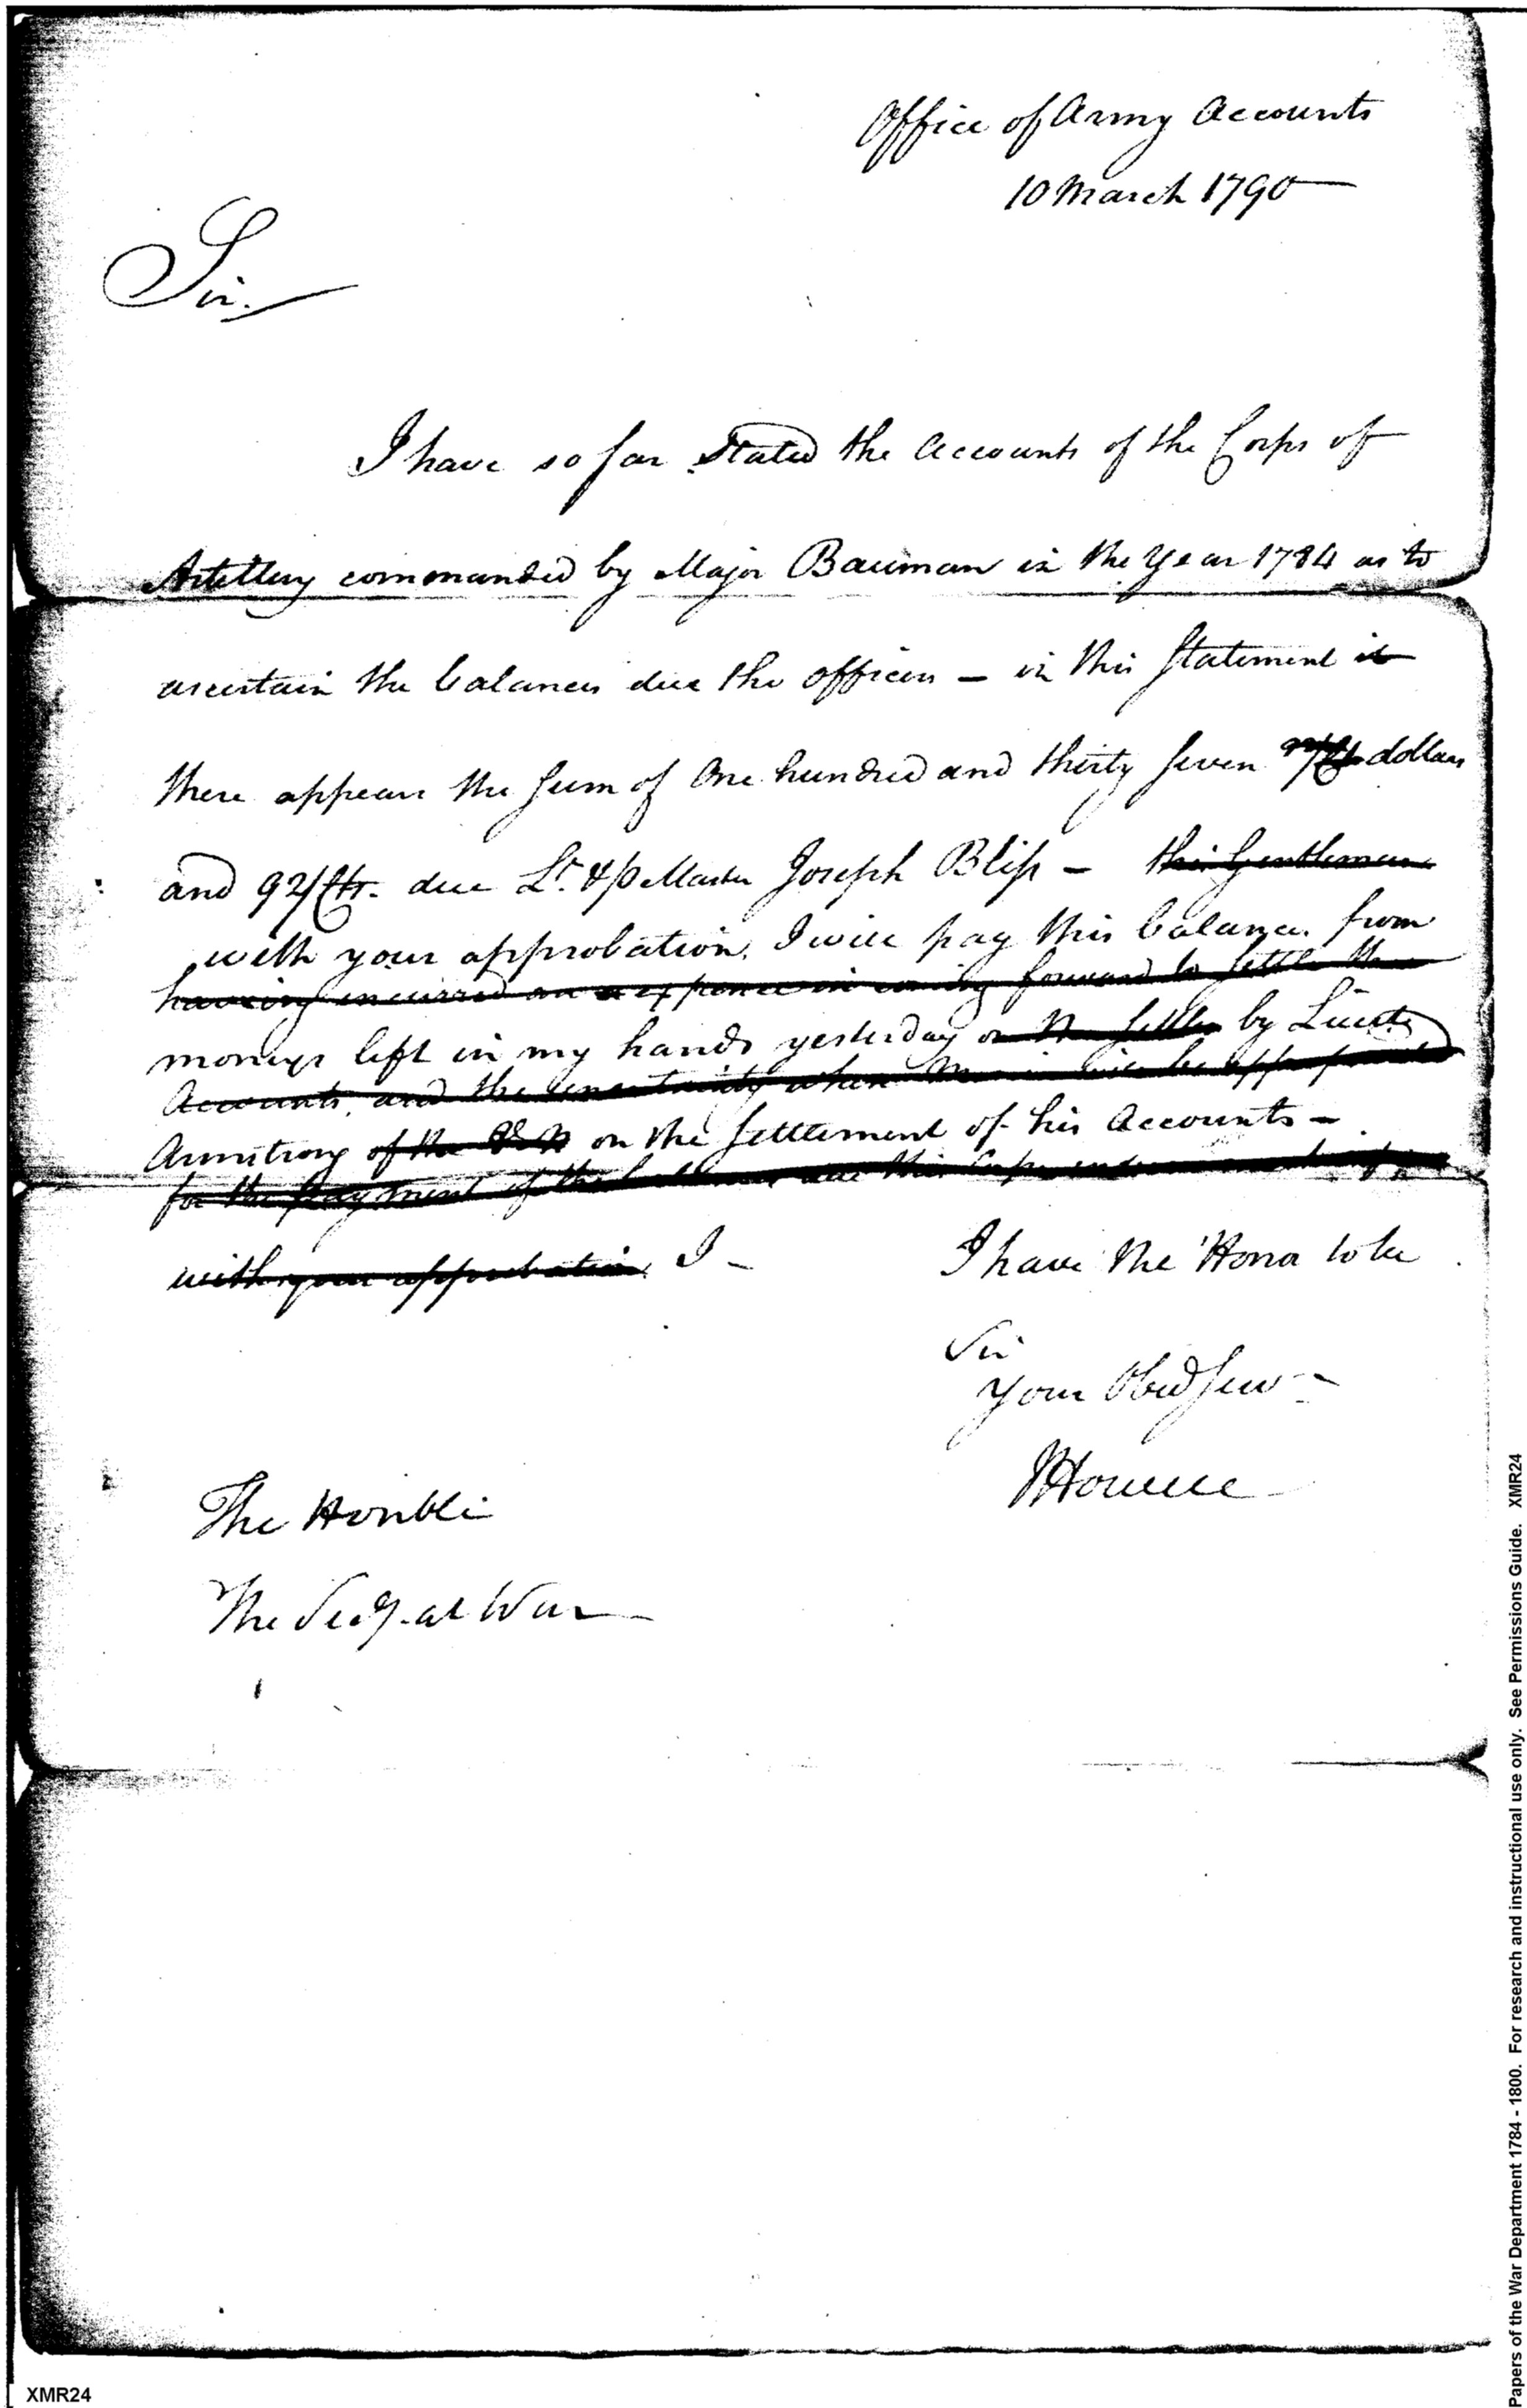 Office of Army Accounts
10 March 1790
Sir.
I have so far Stated the Accounts of the Corps of
Artillery commanded by Major Bauman in the Year 1784 as to
ascertain the balances due the officers – in this Statement it
there appears the Sum of One hundred and thirty Seven dollars
and 92/ due Lt. & pMaster Joseph Bliss – this Gentleman
with your approbation, I will pay this balance from
having incurred an expence in coming forward to settle the
moneys left in my hands yesterday by Lieut.
Accounts, and the uncertainty when
Armstrong of the on the Settlement of his Accounts –
for the payment of the
with your approbation, I –
I have the Honor to be
Sir
Your Obed Serv
JHowell
The Honble
The Secy. at War
Papers of the War Department 1784 - 1800. For research and instructional use only. See Permissions Guide. XMR24
XMR24